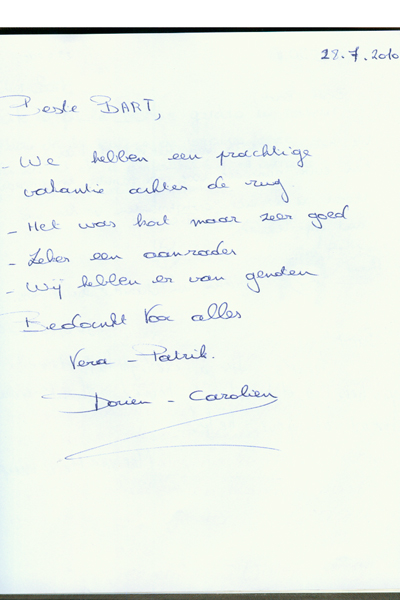 28.7.2010
Beste BART,
- We hebben een prachtige
vakantie achter de rug
- Het was kort maar zeer goed
- Zeker een aanrader
- Wij hebben er van genoten
Bedankt voor alles
Vera - Patrik.
Dorien - Carolien